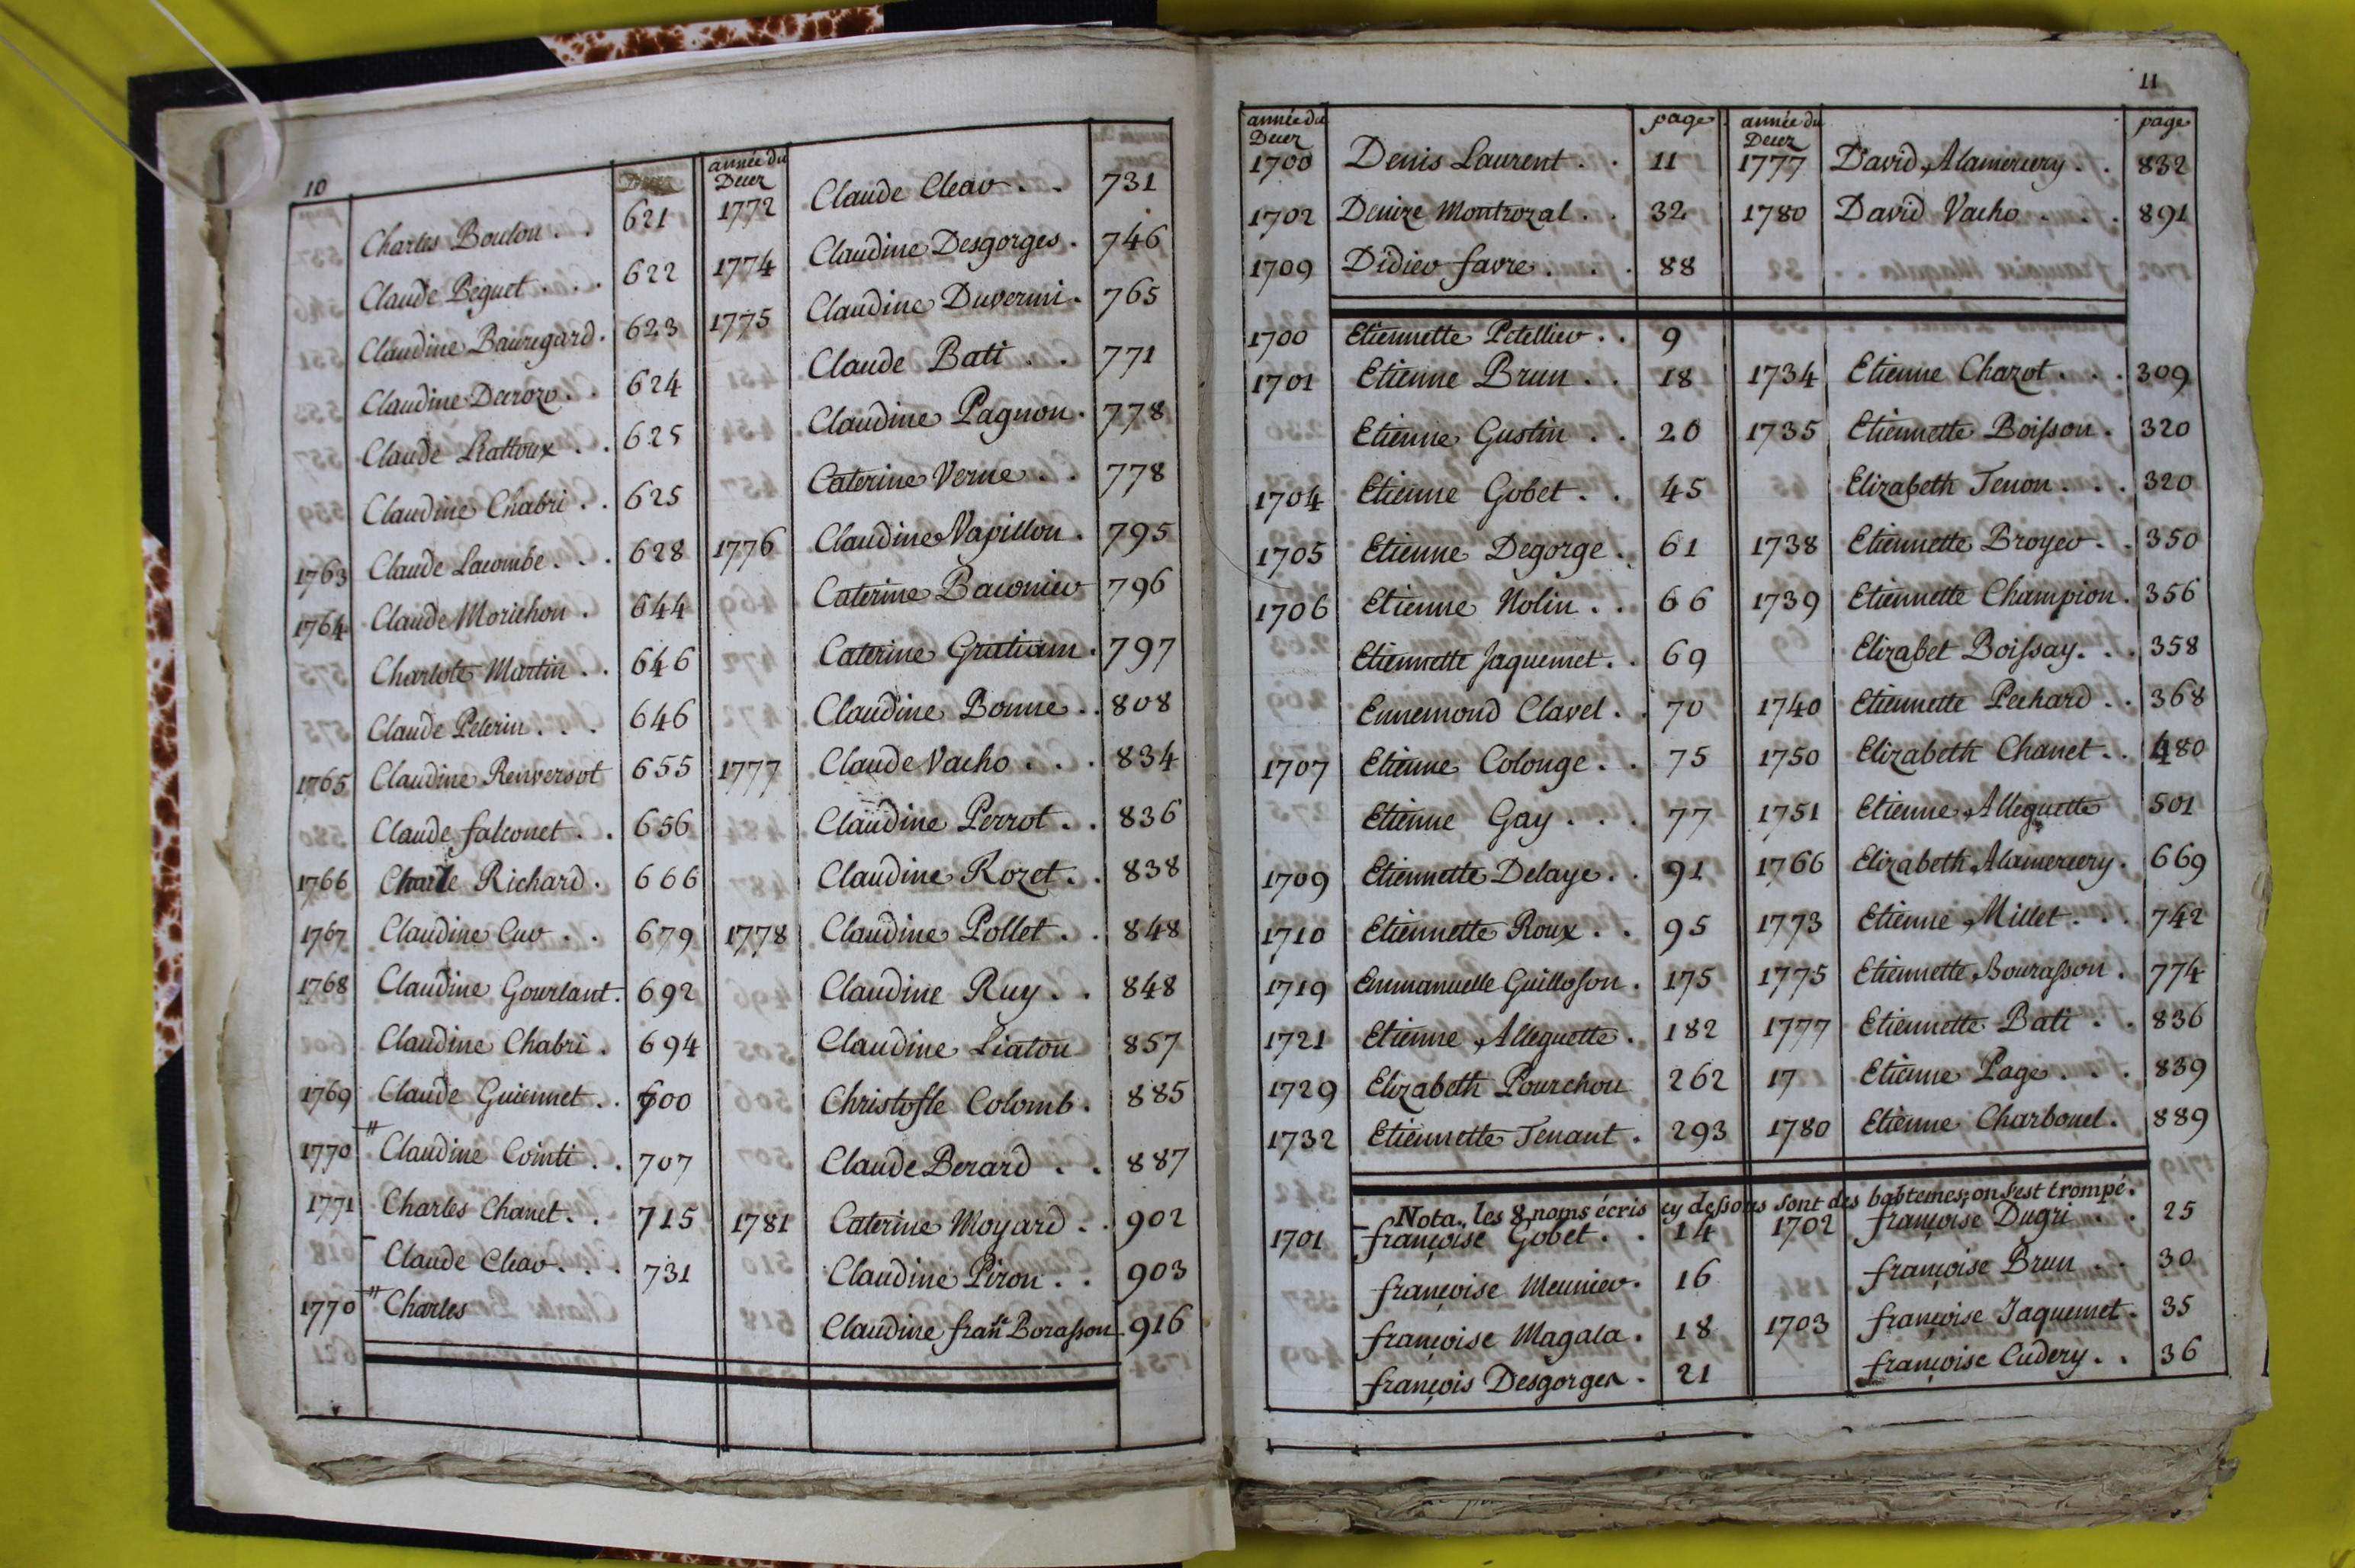 10
Charles Boulon . . 621
Claude Péguet . . . 622
Claudine Bauregard . 623
Claudine Decrozo . . 624
Claude Rattoux . . 625
Claudine Chabri . . 625
1763 Claude Lacombe . . . 628
1764 Claude Morichon . 644
Charlote Martin . . 646
Claude Pelerin . . . 646
1765 Claudine Renversot 655
Claude falconet . . 656
1766 Charle Richard . 666
1767 Claudine Cuv . . 679
1768 Claudine Gourlant . 692
Claudine Chabri . 694
1769 Claude Guiennet . . 700
1770 " Claudine Cointi . . 707
1771 Charles Chanet . . 715
Claude Cleav . . . 731
1770 " Charles
année du
Decez
1772 Claude Cleav . . 731
1774 Claudine Desgorges . 746
1775 Claudine Duverni . 765
Claude Bati . . 771
Claudine Pagnon . 778
Caterine Verne . . 778
1776 Claudine Napillon . 795
Caterine Baconiev 796
Caterine Gratiam . 797
Claudine Bonne . . 808
1777 Claude Vacho . . . 834
Claudine Perrot . . 836
Claudine Rozet . . 838
1778 Claudine Pollet . . 848
Claudine Ruy . . 848
Claudine Liaton 857
Christofle Colomb . 885
Claude Berard . . 887
1781 Caterine Moyard . . 902
Claudine Piron . . 903
Claudine fran.se Borasson 916
11
année du
Decez page
1700 Denis Laurent . . 11
1702 Denize Montrozal . . 32
1709 Didiev favre . . . 88
année du
Decez page
1777 David Alamercery . . 832
1780 David Vacho . . . 891
1700 Etiennette Petelliev . . 9
1701 Etienne Brun . . 18
Etienne Gustin . . 20
1704 Etienne Gobet . . 45
1705 Etienne Degorge . 61
1706 Etienne Nolin . . 66
Etiennette Jaquemet . . 69
Ennemond Clavel . . 70
1707 Etienne Colonge . . 75
Etienne Gay . . . 77
1709 Etiennette Delaye . . 91
1710 Etiennette Roux . . 95
1719 Emmanuelle Guilloson . 175
1721 Etienne Alleguette . 182
1729 Elizabeth Pourchon 262
1732 Etiennette Tenant . 293
1734 Etienne Chazot . . . 309
1735 Etiennette Boisson . 320
Elizabeth Tenon . . . 320
1738 Etiennette Broyev . . 350
1739 Etiennette Champion . 356
Elizabet Boissay . . . 358
1740 Etiennette Pechard . . 368
1750 Elizabeth Chanet . . 480
1751 Etienne Alleguette 501
1766 Elizabeth Alamercery . 669
1773 Etienne Millet . . . 742
1775 Etiennette Bourasson . 774
1777 Etiennette Bati . . 836
17 Etienne Page . . . 839
1780 Etienne Charbonel . 889
Nota, les 8 noms écris cy dessous sont des babtemes; on s'est trompé.
1701 françoise Gobet . . 14
françoise Meuniev . 16
françoise Magala . 18
françois Desgorges . 21
1702 françoise Dugri . . 25
françoise Brun . . 30
1703 françoise Jaquemet . 35
françoise Cudery . . 36